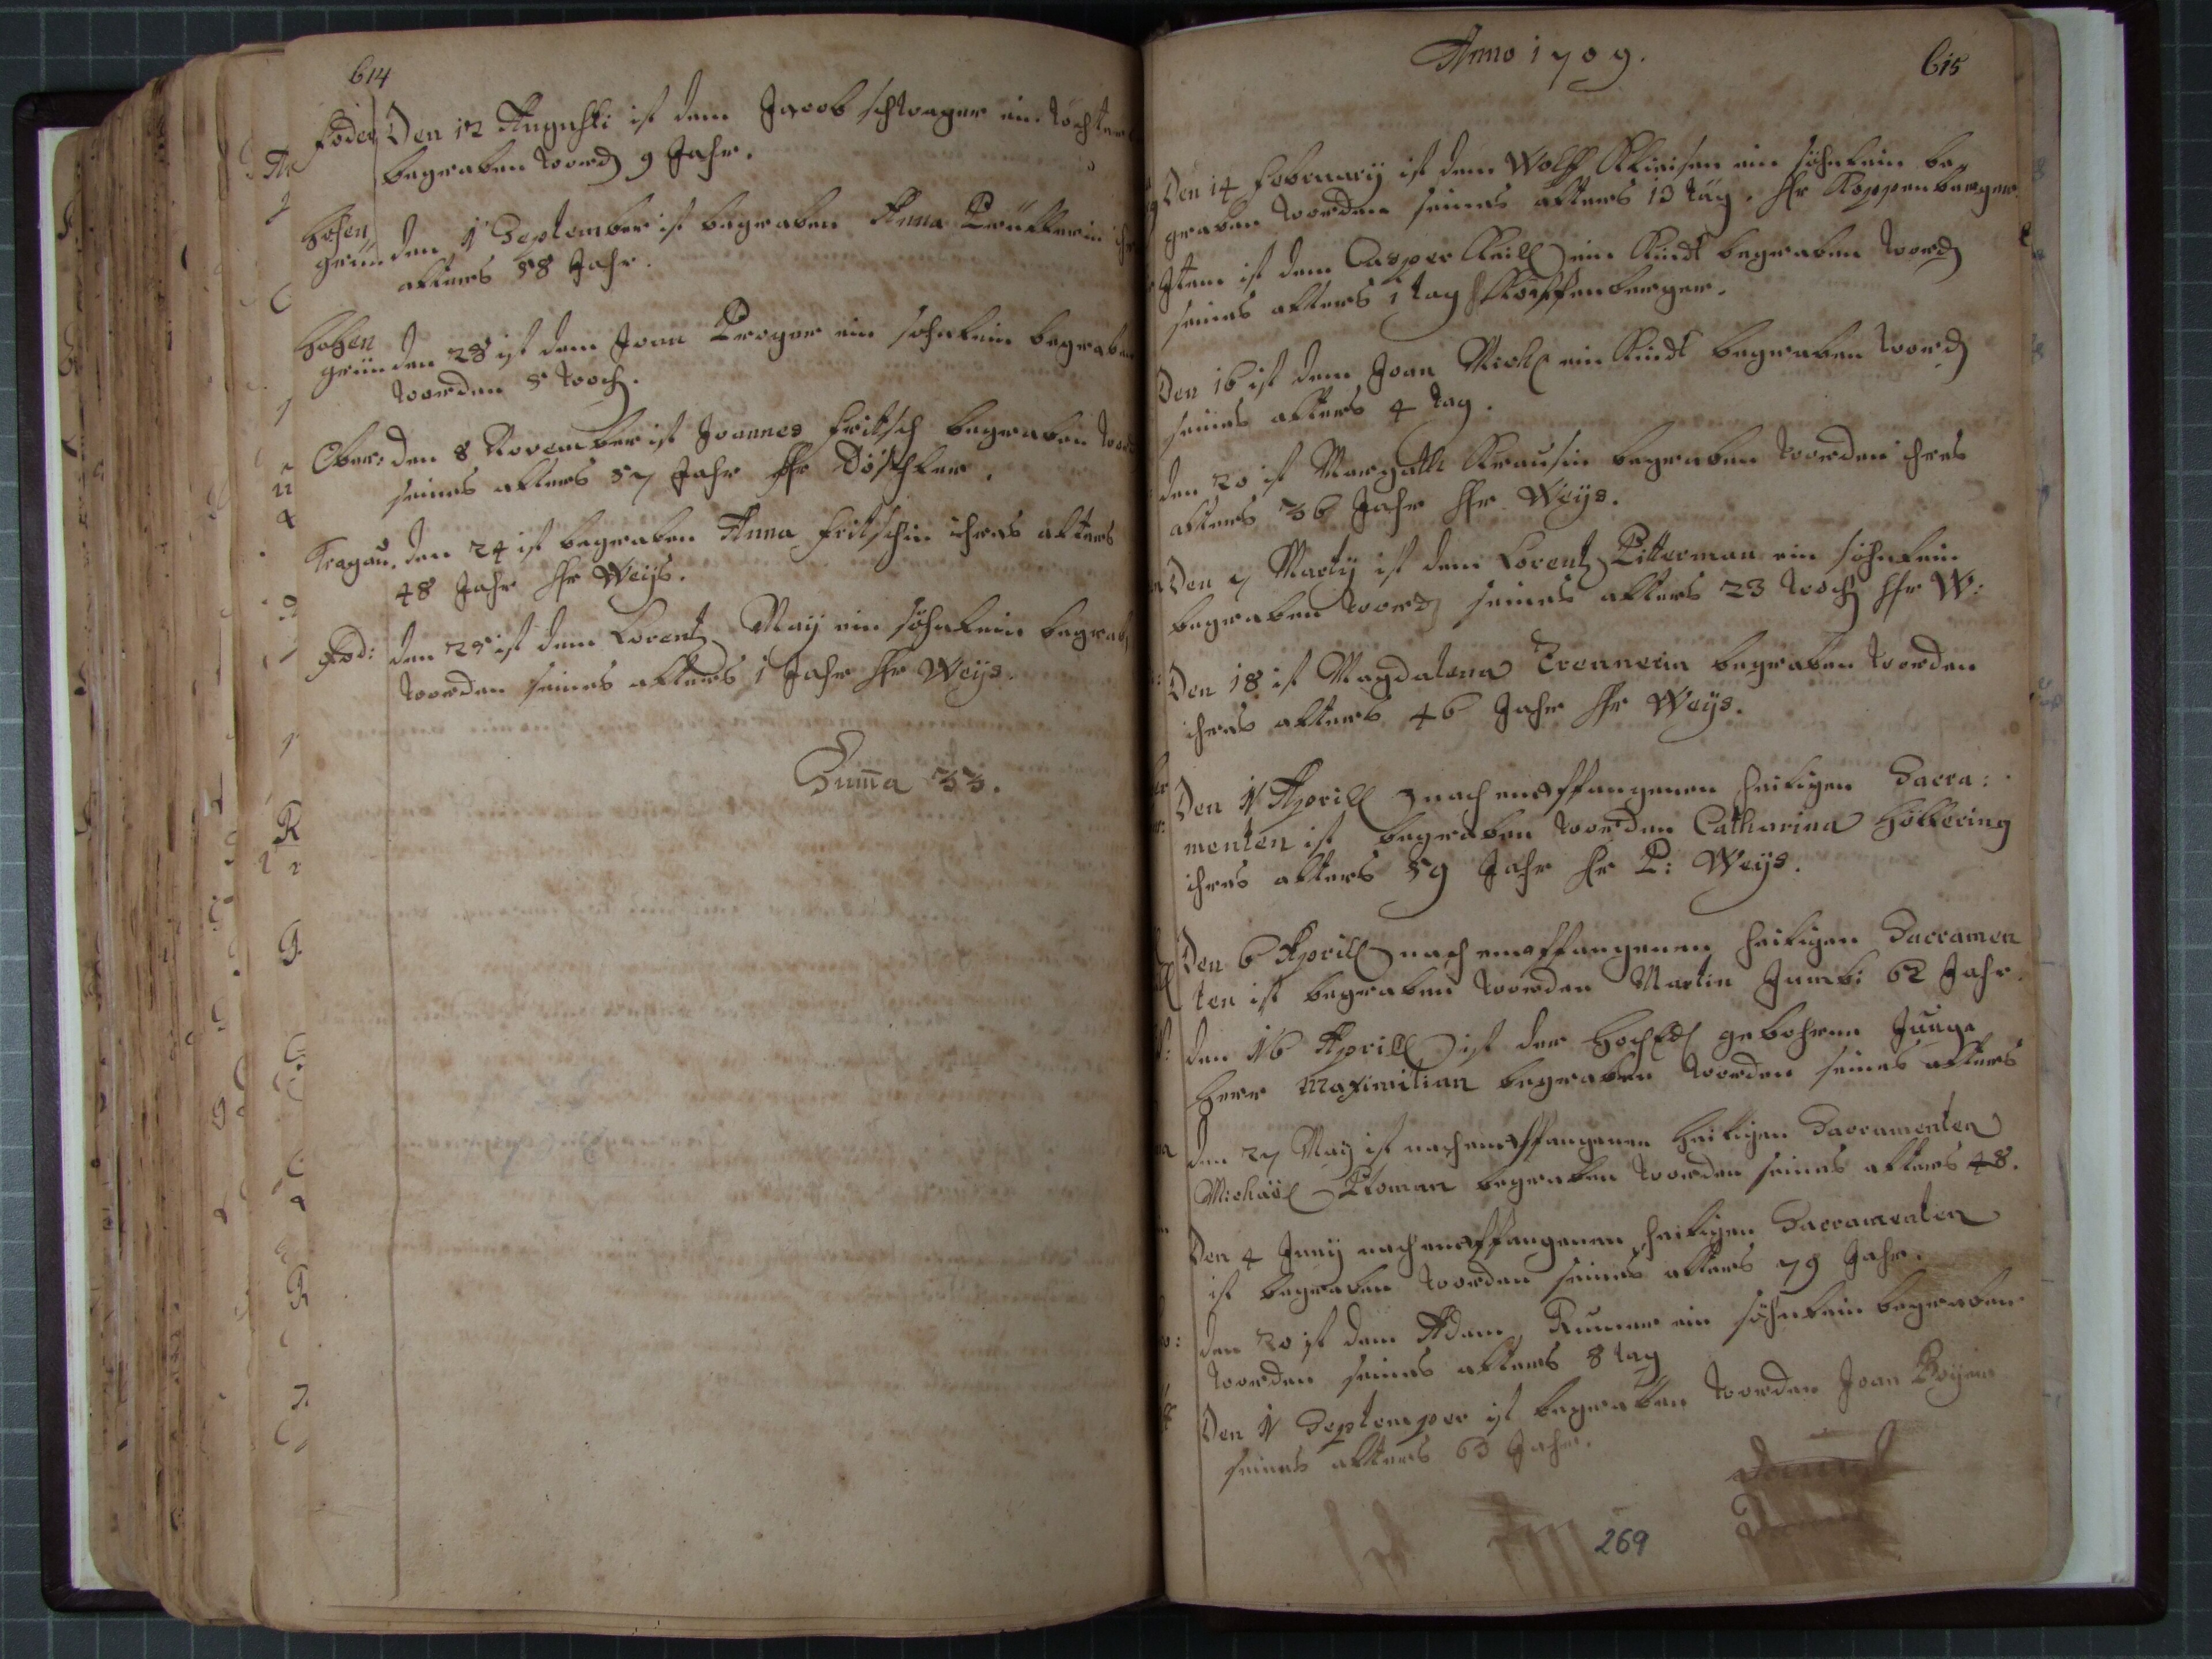 614
Foder Den 12 Augusti ist dem Jacob schwager ein töchterl
begraben word 9 Jahr.
Hohen
grün den 1 September ist begraben Anna Prütlerin ihr
alters 58 Jahr.
Hohen
grün den 28 ist dem Joan Proger ein sohnlein begraben
worden 5 woch.
Ober: den 8 November ist Joannes fritsch begraben word
seines alters 57 Jahr Hr Döschler.
Kragau. den 24 ist begraben Anna fritschin ihres alters
48 Jahr Hr Weÿs.
Fod: den 25 ist dem Lorentz Maÿ ein söhnlein begrab
worden seines alters 1 Jahr Hr Weÿs.
Sum̄a 33.
Anno 1709.
615
Den 14 Februarÿ ist dem Wolff ein söhnlein be
graben worden seines alters 13 tag. Hr Koppenberger
Item ist dem Casper Keill ein Kindt begraben word
seines alters 1 tag Hr
Den 16 ist dem Joan Michl ein Kindt begraben word
seines alters 4 tag.
den 20 ist Margath Krausin begraben worden ihres
alters 36 Jahr Hr Weÿs.
Den 7 Martÿ ist dem Lorentz Pitterman ein söhnlein
begraben word seines alters 23 woch Hr W:
Den 18 ist Magdalena Trennerin begraben worden
ihres alters 46 Jahr Hr Weÿs.
Den 1 Aprill nach empfangenen heiligen Sacra:
menten ist begraben worden Catharina Höllering
ihres alters 59 Jahr Hr P: Weÿs.
Den 6 Aprill nach empfangenen heiligen Sacramen
ten ist begraben worden Martin 62 Jahr.
den 16 Aprill ist der Hochedl gebohrne Junge
Herr Maximilian begraben worden seines alters
den 27 Maÿ ist nach empfangenen heiligen Sacramenten
Michäel Ploman begraben worden seines alters 48.
Den 4 Junÿ nach empfangenen heiligen Sacramenten
ist begraben worden seines alters 79 Jahr.
den 20 ist dem Adam Rumer ein söhnlein begraben
worden seines alters 8 tag
Den 1 Septemper ist begraben worden Joan
seines alters 63 Jahr.
269